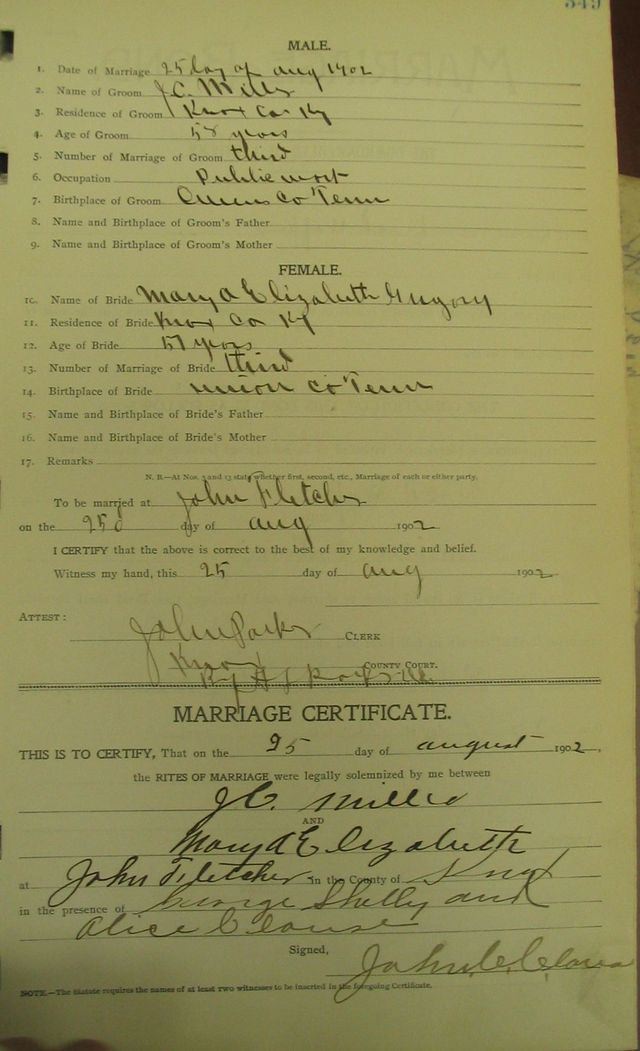 349
MALE.
1. Date of Marriage 25 day of aug 1902
2. Name of Groom J.C. Mills
3. Residence of Groom Knox Co Ky
4. Age of Groom 58 years
5. Number of Marriage of Groom third
6. Occupation
7. Birthplace of Groom Co Tenn
8. Name and Birthplace of Groom's Father
9. Name and Birthplace of Groom's Mother
FEMALE.
10. Name of Bride Mary A Elizabeth
11. Residence of Bride Knox Co Ky
12. Age of Bride 57 years
13. Number of Marriage of Bride third
14. Birthplace of Bride union co Tenn
15. Name and Birthplace of Bride's Father
16. Name and Birthplace of Bride's Mother
17. Remarks
N. B.—At Nos. 5 and 13 state whether first, second, etc., Marriage of each or either party.
To be married at John Fletcher
on the 25 day of aug 1902
I CERTIFY that the above is correct to the best of my knowledge and belief.
Witness my hand, this 25 day of aug 1902
ATTEST: John Parker CLERK
Knox COUNTY COURT.
By
MARRIAGE CERTIFICATE.
THIS IS TO CERTIFY, That on the 25 day of august 1902,
the RITES OF MARRIAGE were legally solemnized by me between
J C.
AND
Mary A Elizabeth
at John Fletcher in the County of Knox
in the presence of George Shelly and
Alice Clouse
Signed,
John C. Clouse
NOTE.—The Statute requires the names of at least two witnesses to be inserted in the foregoing Certificate.